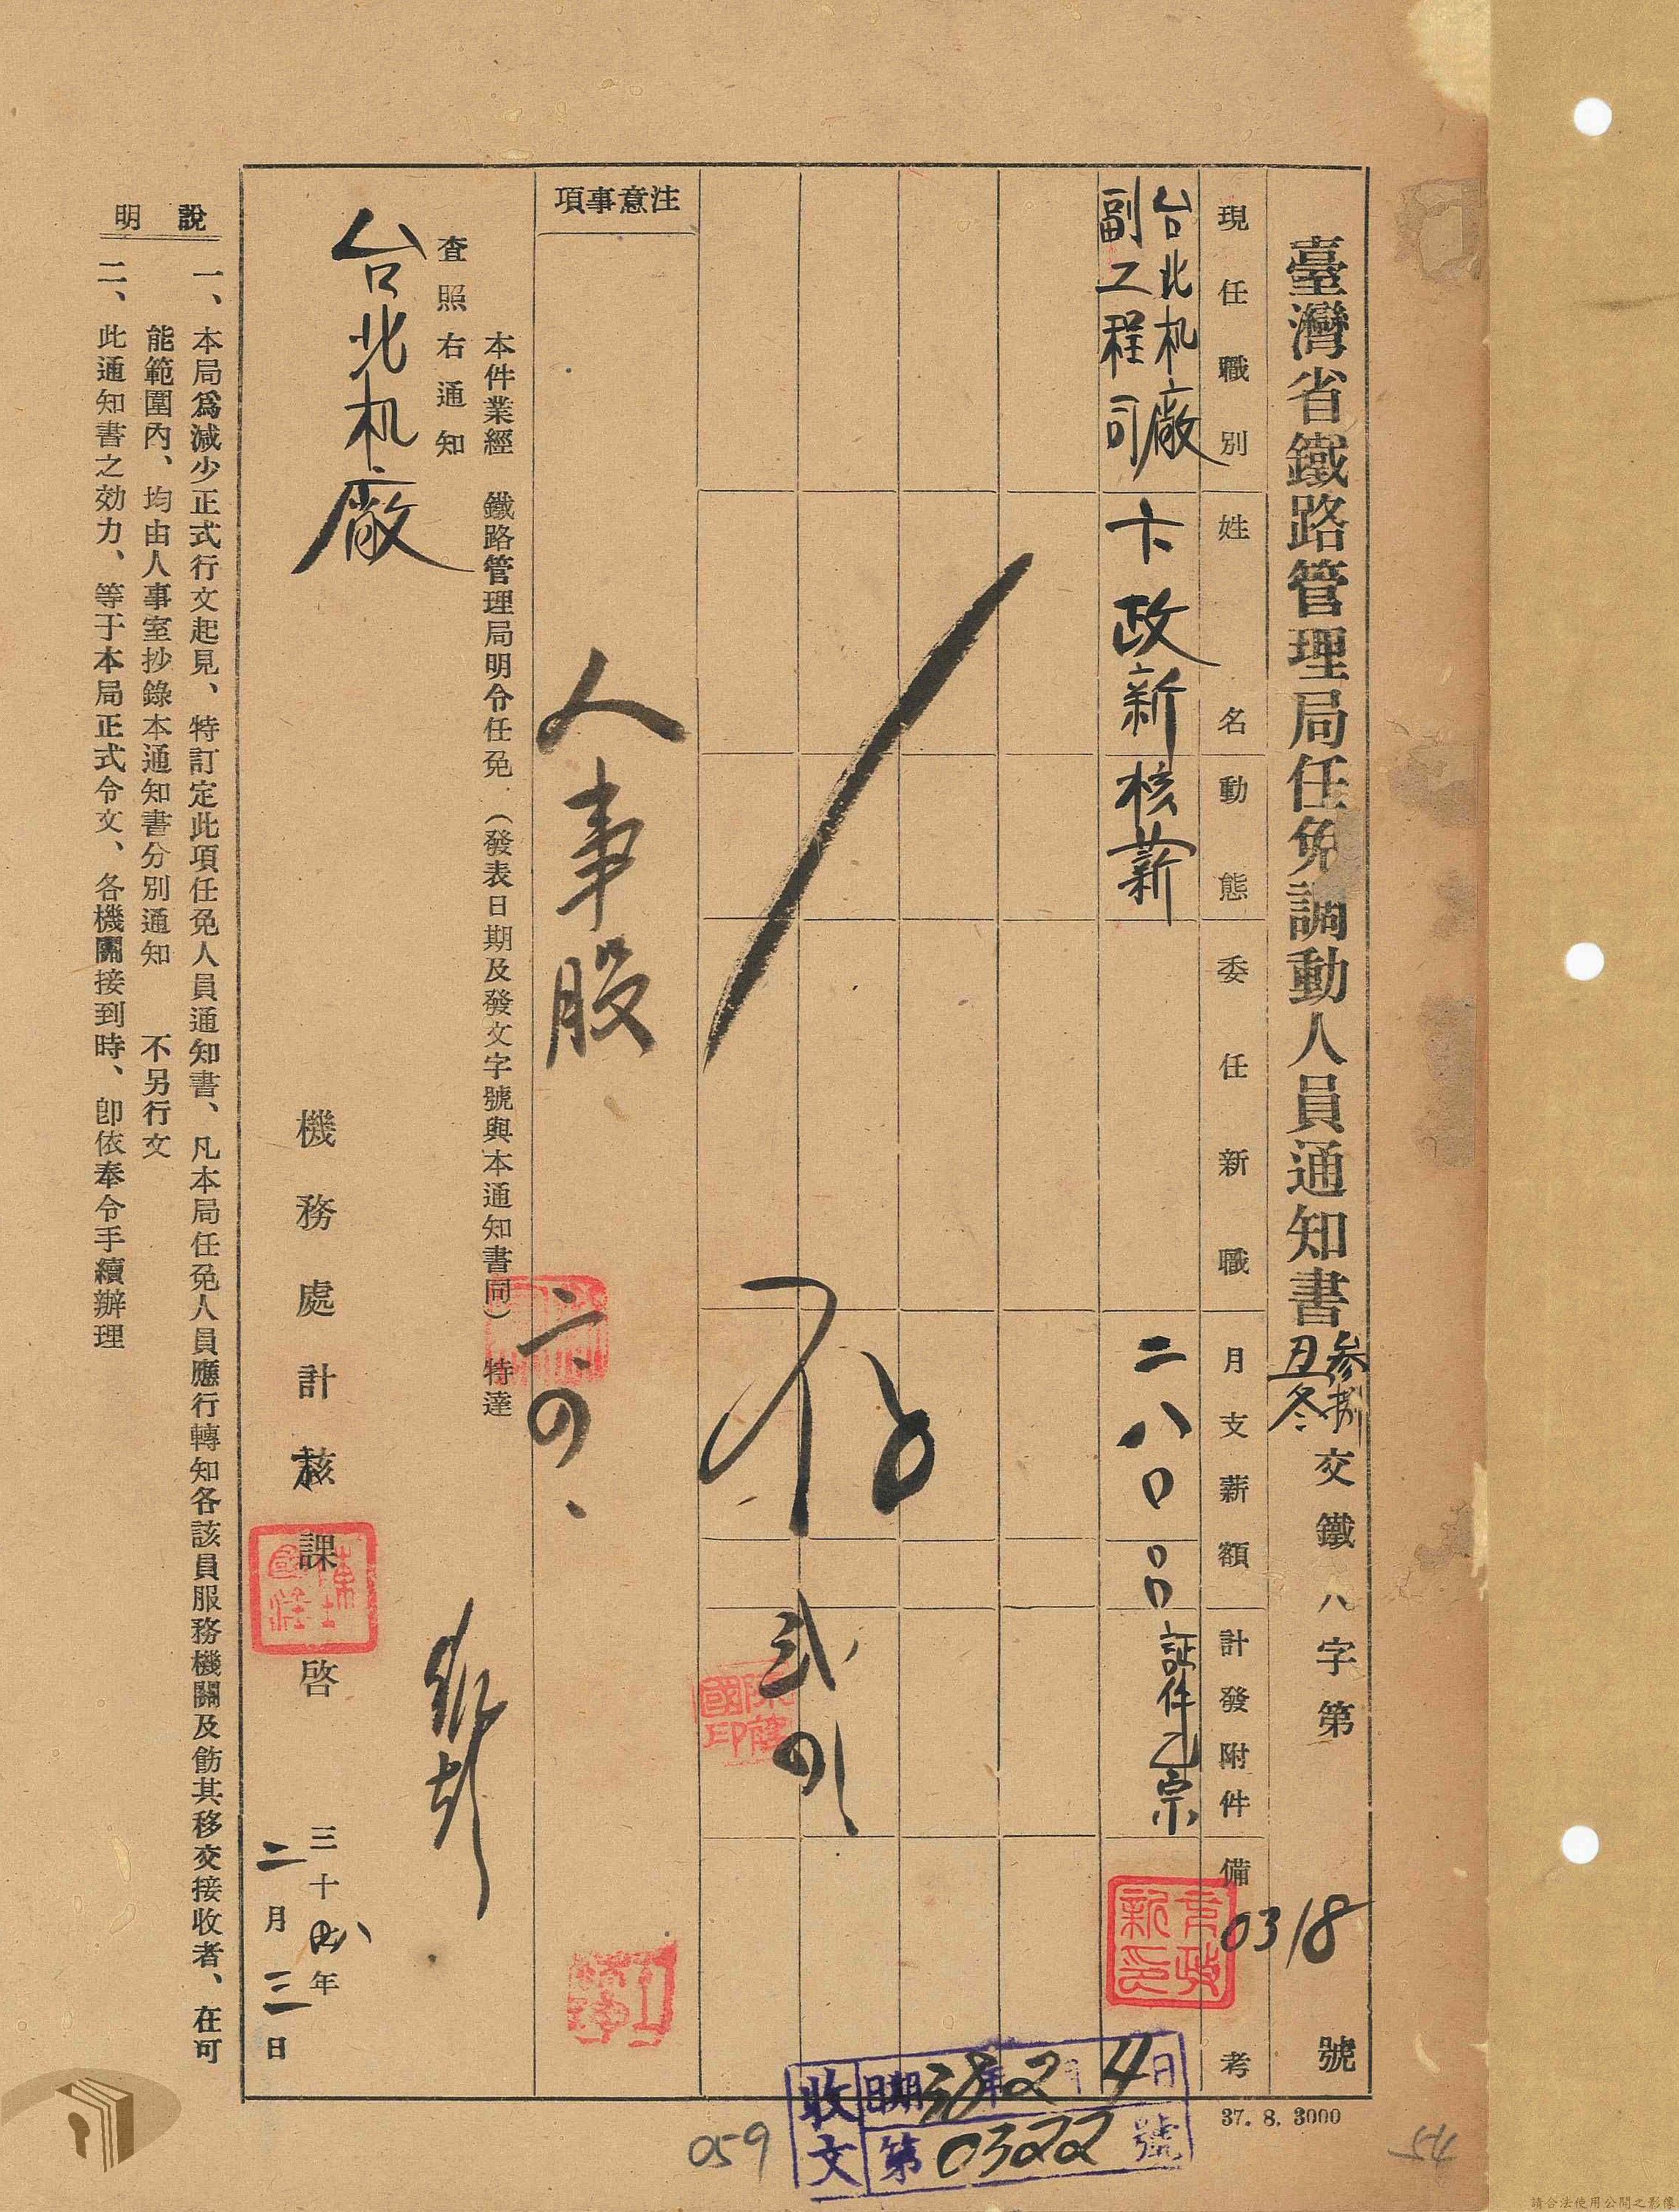 臺灣省鐵路管理局任免調動人員通知書
参捌
丑冬
交鐵人字第0318號
現任職別
姓名
動態
委任新職
月支薪額
計發附件
備考
台北机廠
副工程司
卞政新
核薪
二八〇〇〇
証件乙宗
注意事項
人事股
二、四、
本件業經 鐵路管理局明令任免(發表日期及發文字號與本通知書同)特達
查照右通知
台北机廠
機務處計核課啓
三十八年
二月三日
說明
一、本局爲減少正式行文起見、特訂定此項任免人員通知書、凡本局任免人員應行轉知各該員服務機關及飭其移交接收者、在可
能範圍內、均由人事室抄錄本通知書分別通知 不另行文
二、此通知書之効力、等于本局正式令文、各機關接到時、卽依奉令手續辦理
收文
日期38年2月4日
第0322號
059
37. 8. 3000
45
請合法使用公開之影像